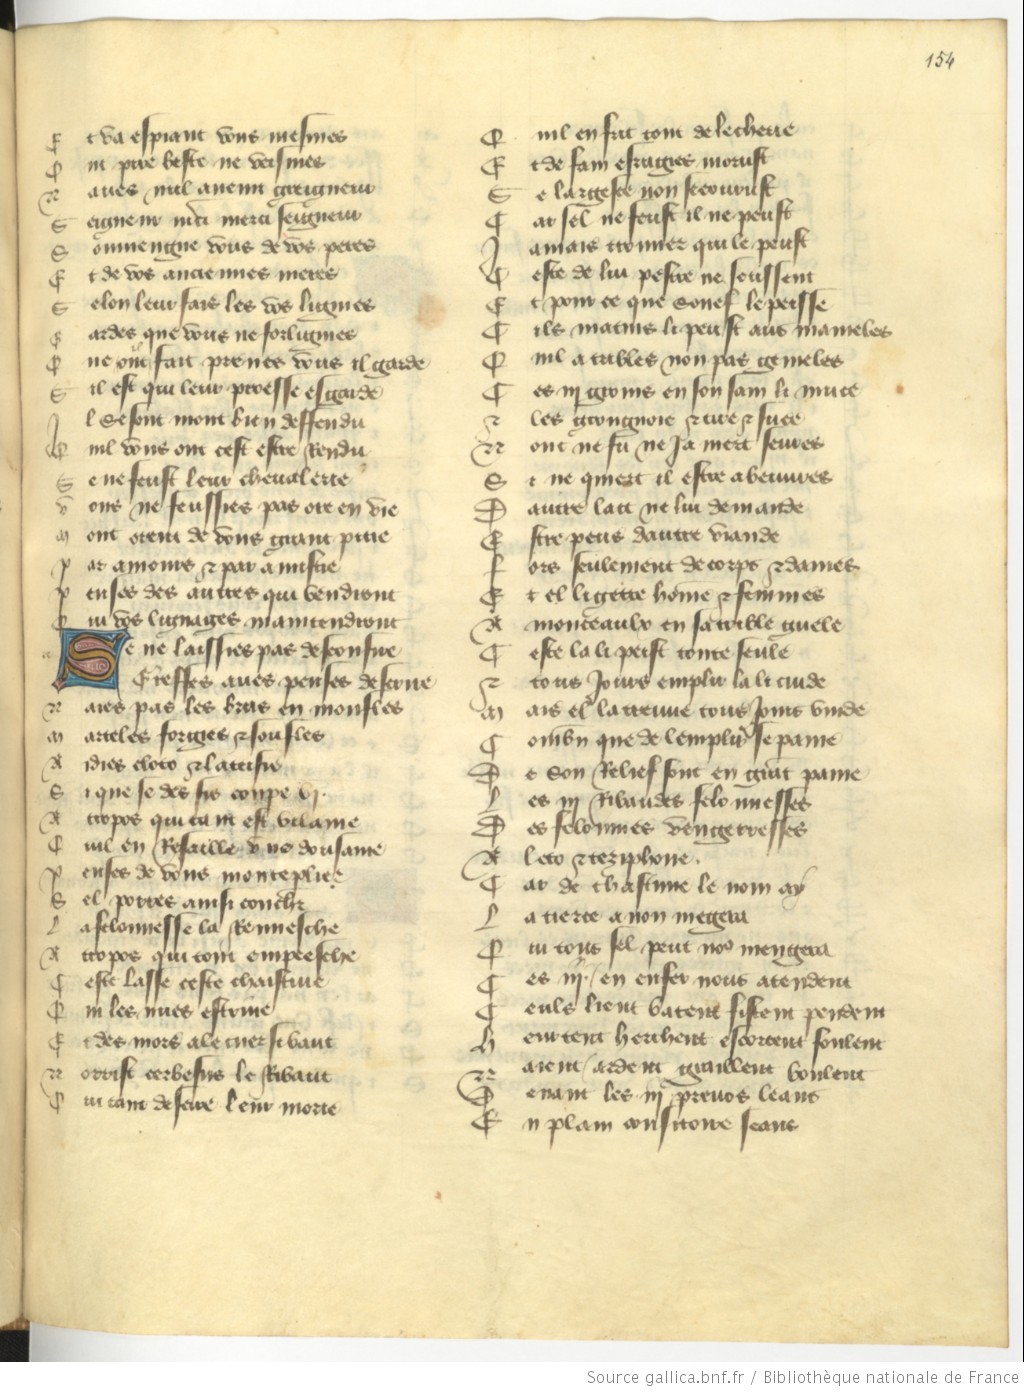 154
E t va espiant vous mesmes
O nt pire beste ne veismes
N aves nul anemi greigneur
S eigneur mci merci seigneur
S ouviengne vous de vos peres
E t de vos anciennes meres
S elon leur fais les vos lignies
G ardes que vous ne forlignies
Q ne ont fait prenes vous il garde
S il est qui leur proesse esgarde
I l se sont mont bien deffendu
Q uil vous ont cest estre Rendu
S e ne feust leur chevalerie
V ous ne feussies pas ore en vie
M ont orent de vous grant pitie
P ar amours et par amistie
P enses des autres qui vendront
Q ui vos lignages maintendront
S e ne laissies pas desconfire
Greffes aves penses descrire
N aies pas les bras en moufles
M arteles forgies et soufles
A idies cloto et lachesis
S i que se des fis coupe vi.
A tropos qui tant est vilaine
Q uil en Resaille une dousaine
P enses de vous monteplier
S el portes ainsi conchr
L a felonnesse la Rennesche
A tropos qui tout empeesche
C este lasse ceste chaistive
Q ui les mies estrive
E t des mors a le cuer si baut
N orrist cerberus le Ribaut
Q ui tant desire leur morie
Q uil en frit tout de lecherie
E t de fain esragies morust
S e la garse non secourust
C ar sel ne feust il ne peust
J amais trouver qui le peust
C este de lui pestre ne seussent
E t pour ce que souef le peisse
C ils matins li peust aus mameles
Q uil a tribles non pas gemeles
C es iij groins en son sain li muce
et les grongnoie et tire et suce
N ont ne fu ne ja niert sevres
S i ne quiert il estre abeuvres
D autre lait ne lui demande
E stre peus dautre viande
F ors seulement de corps et dames
E t el li gette home et femmes
A monceaulx en sa trible guele
C este la li peist toute seule
et tous jours emplir la li cuide
M ais el la treuve tous jours vuide
C ombn que de lemplir se paine
D e son Relief sont en grat paine
L es iij Ribaudes felonnesses
D es felonnies vengeresses
A leto et teziphone.
C ar de chascune le nom ay
L a tierce a non megera
Q ui tous sel peut nos mengera
C es iij. en enfer nous atendent
C euls lient batent fustent pendent
H eurtent herchent escorcent foulent
N aient ardent graillent boulent
D evant les iij prevos leans
E n plain consitoire seans
Source gallica.bnf.fr / Bibliothèque nationale de France